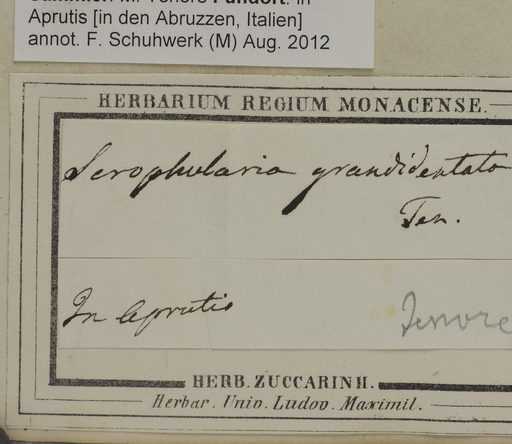 Sammler: M. Tenore Fundort: In
Aprutis [in den Abruzzen, Italien]
annot. F. Schuhwerk (M) Aug. 2012
HERBARIUM REGIUM MONACENSE.
Scrophularia grandidentata
Ten.
In Aprutis
Tenore
HERB. ZUCCARINII.
Herbar. Univ. Ludov. Maximil.